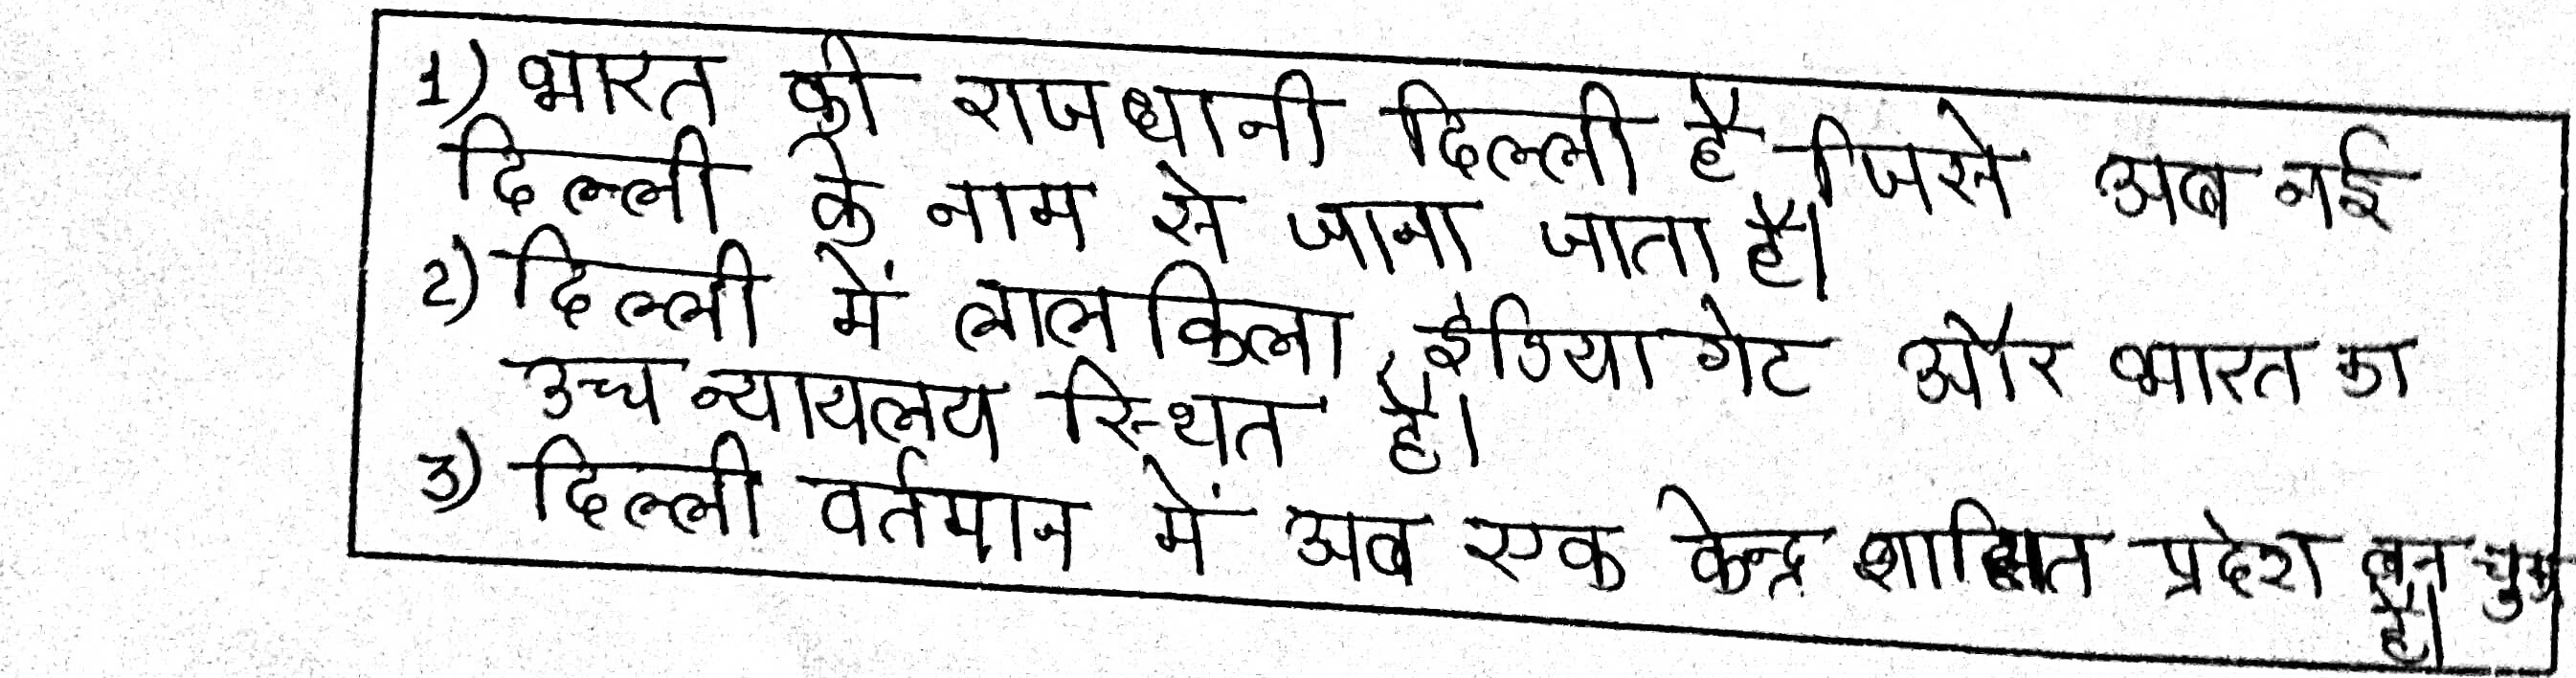 1) भारत की राजधानी दिल्ली है जिसे अब नई
दिल्ली के नाम से जाना जाता है।
2) दिल्ली में लाल किला, इंडिया गेट और भारत का
उच्च न्यायलय स्थित है।
3) दिल्ली वर्तमान में अब एक केन्द्र शासित प्रदेश बन चुका
है।